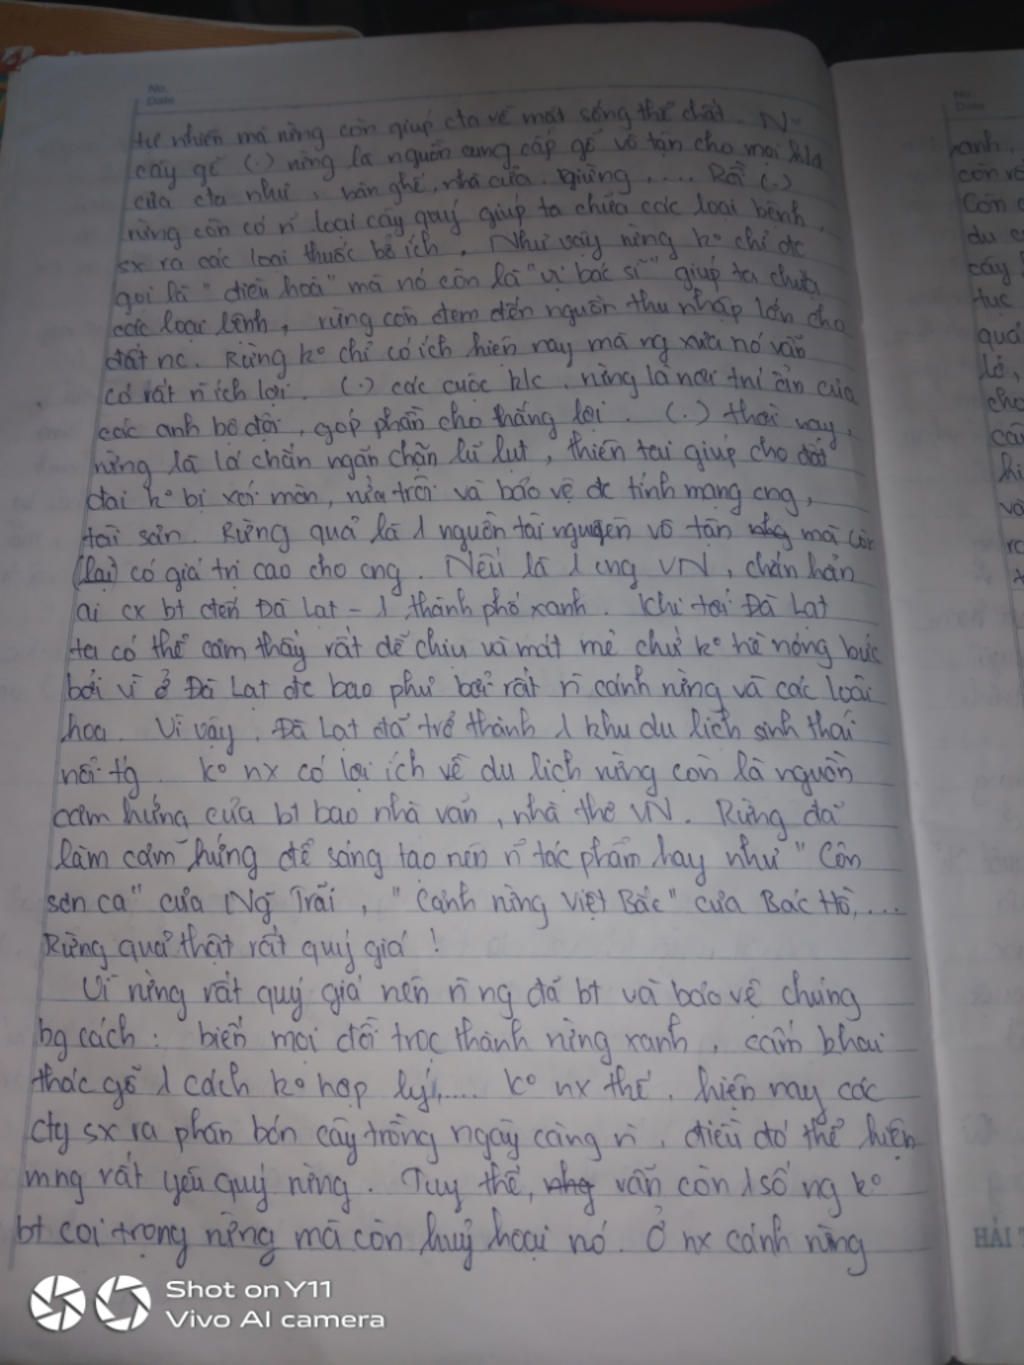 No.
Date
tự nhiên mà rừng còn giúp cta về mặt sống thể chất. N~
cây gỗ (.) rừng là nguồn cung cấp gỗ vô tận cho mọi
của cta như, bàn ghế, nhà cửa, giường, .... Rồi (.)
rừng còn có n~ loại cây quý giúp ta chữa các loại bệnh,
sx ra các loại thuốc bổ ích. Như vậy rừng ko chỉ đc
gọi là "điều hoà" mà nó còn là "vị bác sĩ" giúp ta chữa
các loại bệnh, rừng còn đem đến nguồn thu nhập lớn cho
đất nc. Rừng ko chỉ có ích hiện nay mà ng xưa nó vẫn
có rất n` ích lợi. (.) các cuộc k/c, rừng là nơi trú ẩn của
các anh bộ đội, góp phần cho thắng lợi. (.) thời nay,
rừng là lá chắn ngăn chặn lũ lụt, thiên tai giúp cho đất
đai ko bị xói mòn, rửa trôi và bảo vệ đc tính mạng cng,
tài sản. Rừng quả là 1 nguồn tài nguyên vô tận mà còn
(lại) có giá trị cao cho cng. Nếu là 1 cng VN, chắn hản
ai cx bt đến Đà Lạt - 1 thành phố xanh. Khi tới Đà Lạt
ta có thể cảm thấy rất dễ chịu và mát mẻ chứ ko hề nóng bức
bởi vì ở Đà Lạt đc bao phư bởi rất n` cánh rừng và các loài
hoa. Vì vậy, Đà Lạt đã trở thành 1 khu du lịch sinh thái
nổi tg. Ko nx có lợi ích về du lịch rừng còn là nguồn
cảm hứng của bt bao nhà văn, nhà thơ VN. Rừng đã
làm cảm hứng để sáng tạo nên n~ tác phẩm hay như "Côn
sơn ca" của Ng~ Trãi, "Cảnh rừng Việt Bắc" của Bác Hồ,...
Rừng quả thật rất quý giá!
Vì rừng rất quý giá nên n` ng đã bt và bảo vệ chúng
bg cách: biến mọi đồi trọc thành rừng xanh, cấm khai
thác gỗ 1 cách ko hợp lý,.... Ko nx thế, hiện nay các
cty sx ra phân bón cây trồng ngày càng n`, điều đó thể hiện
mng rất yêu quý rừng. Tuy thế, vẫn còn 1 số ng ko
bt coi trọng rừng mà còn huỷ hoại nó. Ở nx cánh rừng
No.
Date
xanh,
Còn
du
cây
tục
quá
lở,
cho
HẢI
Shot on Y11
Vivo AI camera